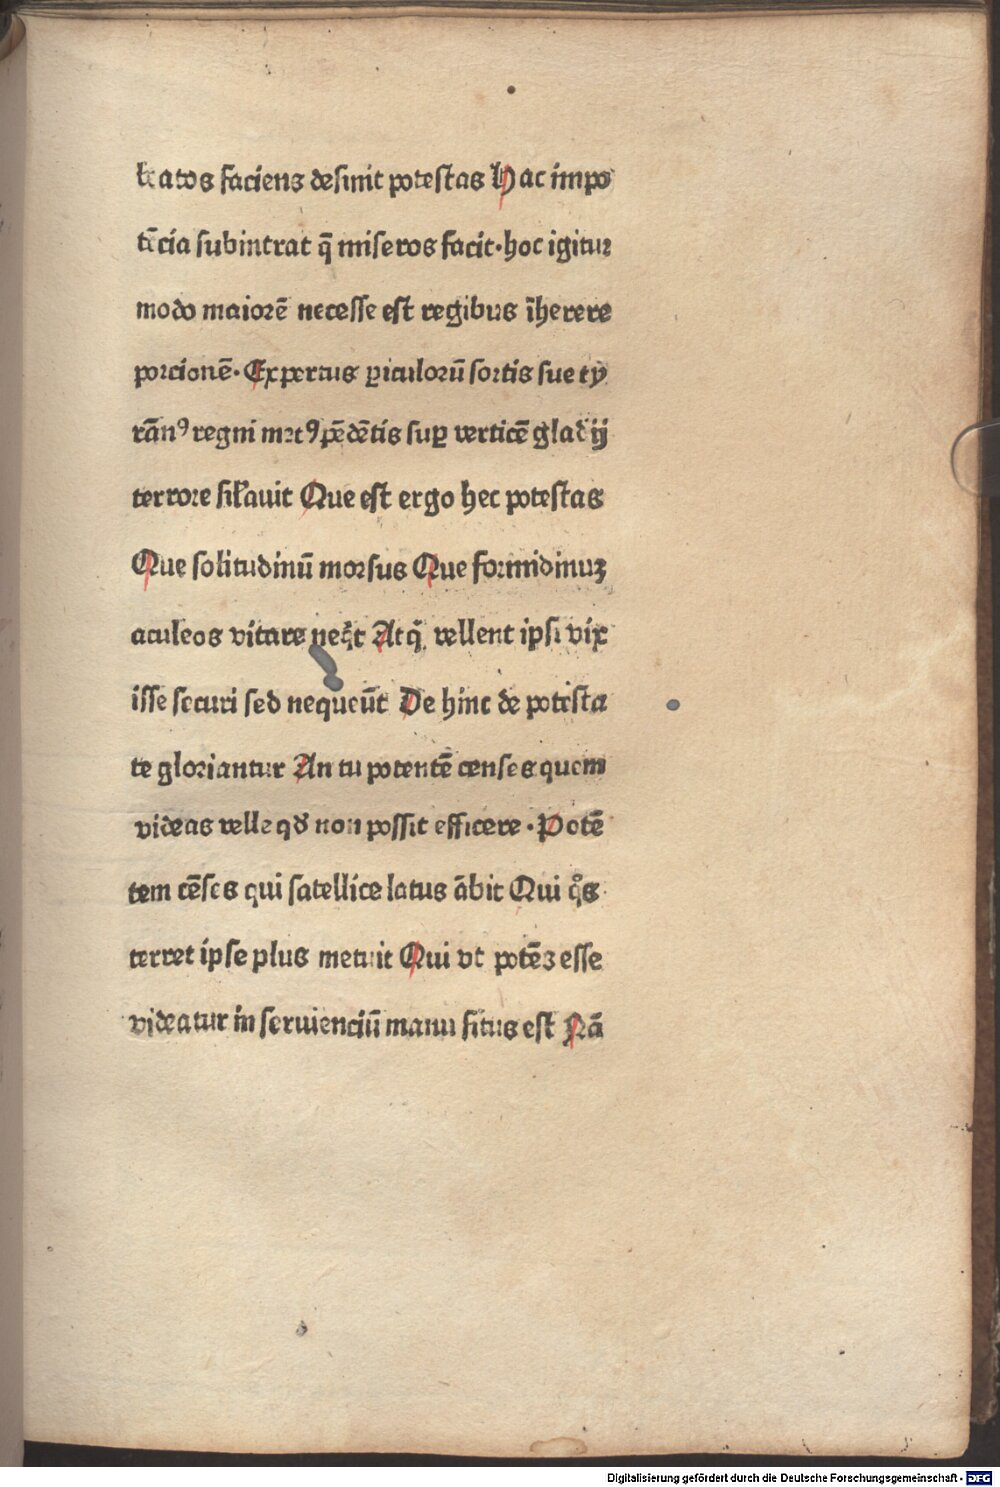 beatos faciens desinit potestas Hac impo
tēcia subintrat q̄ miseros facit·hoc igitur
modo maiorē necesse est regibus īherere
porcionē·Expertus ꝑiculorū sortis sue ty
rānꝰ regni metꝰ pēdētis suꝑ verticē gladij
terrore sil'auit Que est ergo hec potestas
Que solitudinū morsus Que formidinuꝫ
aculeos vitare neq̇t Atq̇ vellent ipsi vix
isse securi sed nequeūt De hinc de potesta
te gloriantur An tu potentē censes quem
videas velle qd̓ non possit efficere·Potē
tem cēses qui satellice latus ābit Qui q̊s
terret ipse plus metuit Qui vt potēs esse
videatur in seruienciū manu situs est Nā
Digitalisierung gefördert durch die Deutsche Forschungsgemeinschaft - DFG